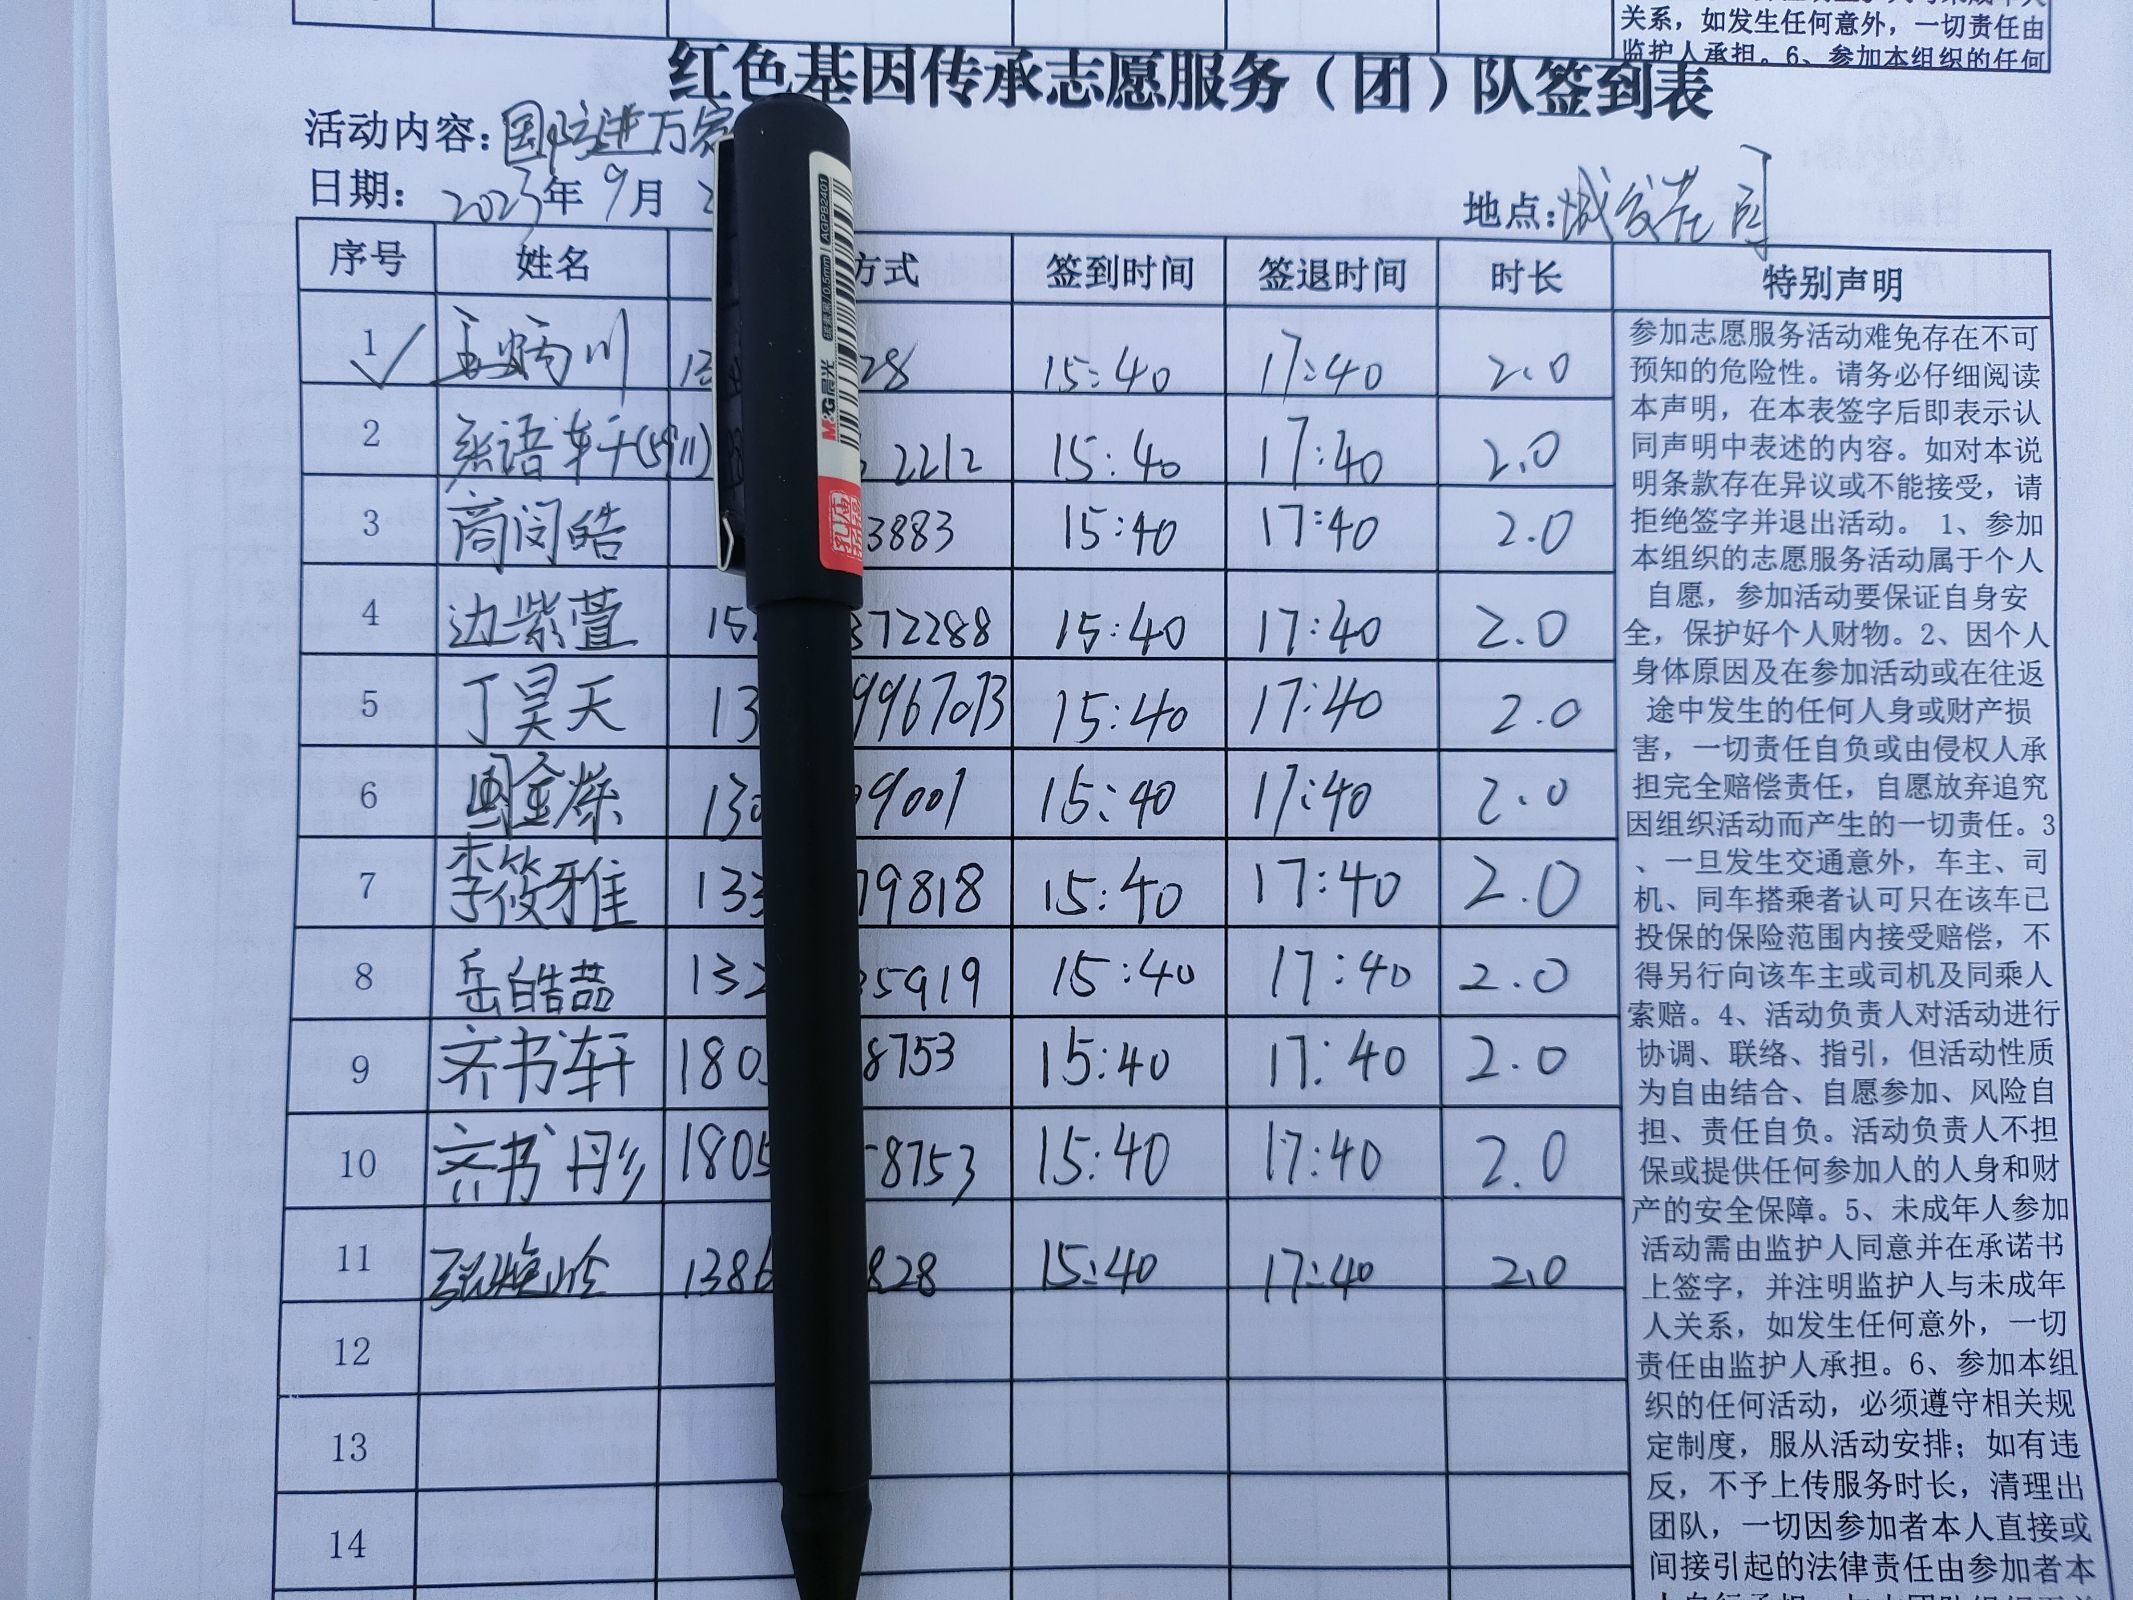 关系，如发生任何意外，一切责任由
监护人承担。6、参加本组织的任何
红色基因传承志愿服务（团）队签到表
活动内容：国防进万家
日期：2023年9月
地点：城发花园
序号 姓名 方式 签到时间 签退时间 时长 特别声明
1 川 13 28 15:40 17:40 2.0
2 语轩 2212 15:40 17:40 2.0
3 商闵皓 3883 15:40 17:40 2.0
4 边紫萱 15 372288 15:40 17:40 2.0
5 丁昊天 13 9967073 15:40 17:40 2.0
6 国金燦 130 99001 15:40 17:40 2.0
7 李筱雅 133 79818 15:40 17:40 2.0
8 岳皓喆 132 35919 15:40 17:40 2.0
9 齐书轩 180 8753 15:40 17:40 2.0
10 齐书彤 1805 8753 15:40 17:40 2.0
11 1386 828 15:40 17:40 2.0
12
13
14
参加志愿服务活动难免存在不可
预知的危险性。请务必仔细阅读
本声明，在本表签字后即表示认
同声明中表述的内容。如对本说
明条款存在异议或不能接受，请
拒绝签字并退出活动。 1、参加
本组织的志愿服务活动属于个人
自愿，参加活动要保证自身安
全，保护好个人财物。2、因个人
身体原因及在参加活动或在往返
途中发生的任何人身或财产损
害，一切责任自负或由侵权人承
担完全赔偿责任，自愿放弃追究
因组织活动而产生的一切责任。3
、一旦发生交通意外，车主、司
机、同车搭乘者认可只在该车已
投保的保险范围内接受赔偿，不
得另行向该车主或司机及同乘人
索赔。4、活动负责人对活动进行
协调、联络、指引，但活动性质
为自由结合、自愿参加、风险自
担、责任自负。活动负责人不担
保或提供任何参加人的人身和财
产的安全保障。5、未成年人参加
活动需由监护人同意并在承诺书
上签字，并注明监护人与未成年
人关系，如发生任何意外，一切
责任由监护人承担。6、参加本组
织的任何活动，必须遵守相关规
定制度，服从活动安排；如有违
反，不予上传服务时长，清理出
团队，一切因参加者本人直接或
间接引起的法律责任由参加者本
M&G晨光 碳素黑/0.5mm AGPB2401
孔庙祈福